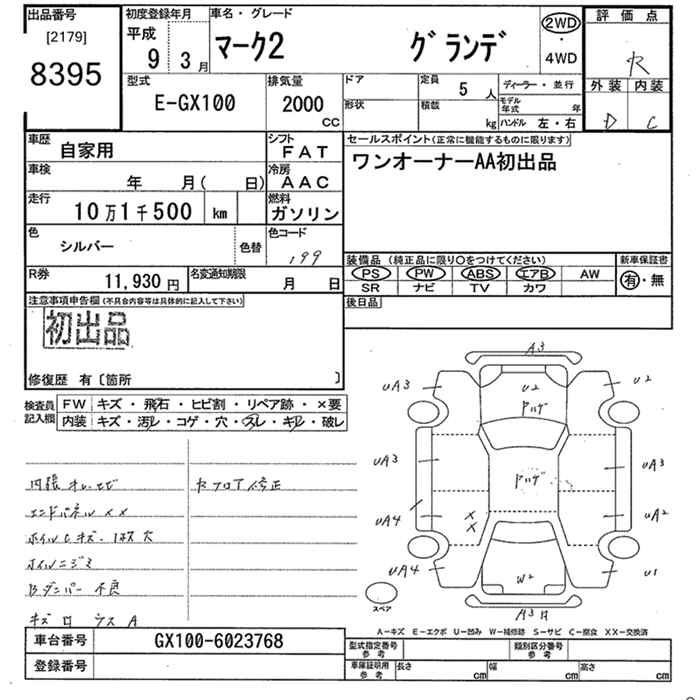 出品番号
[2179]
8395
初度登録年月
平成
9 3月
車名・グレード
マーク2 グランデ
2WD
・
4WD
評価点
R
外装 内装
D C
型式
E-GX100
排気量
2000
CC
ドア
形状
定員
5 人
積載
kg
ディーラー・並行
モデル年式 年
ハンドル 左・右
車歴
自家用
シフト
FAT
車検
年 月( 日)
冷房
AAC
走行
10万1千500 km
燃料
ガソリン
色
シルバー
色替
色コード
199
R券
11,930円
名変通知期限
月 日
セールスポイント(正常に機能するものに限ります)
ワンオーナーAA初出品
装備品(純正品に限り○をつけてください)
PS PW ABS エアB AW
SR ナビ TV カワ
新車保証書
有・無
後日品
注意事項申告欄(不具合内容等は具体的に記入して下さい)
初出品
修復歴 有〔箇所 〕
検査員記入欄
FW キズ・飛石・ヒビ割・リペア跡・×要
内装 キズ・汚レ・コゲ・穴・スレ・キレ・破レ
エンドパネル ××
不良
A3
UA3
U2
U2
ハゲ
UA3
UA3
ハゲ
UA4
×
×
UA2
UA4
W2
U1
スペア
A3
A-キズ E-エクボ U-凹み W-補修跡 S-サビ C-腐食 XX-交換済
車台番号
GX100-6023768
登録番号
型式指定番号
参考
類別区分番号
参考
車庫証明用
参考
長さ cm
幅 cm
高さ cm